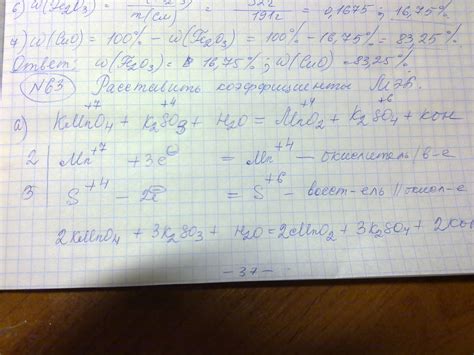 6) ω(Fe₂O₃) = = 0,1675; 16,75%
m(см) 191г
7) ω(CuO) = 100% - ω(Fe₂O₃) = 100% - 16,75% = 83,25%
Ответ: ω(Fe₂O₃) = 16,75%; ω(CuO) = 83,25%.
№63 Расставить коэффициенты МЭБ.
+7 +4 +4 +6
а) KMnO₄ + K₂SO₃ + H₂O = MnO₂ + K₂SO₄ + KOH
2 | Mn⁺⁷ + 3e⁻ = Mn⁺⁴ - окислитель/в-е
3 | S⁺⁴ - 2e⁻ = S⁺⁶ - восст-ель//окисл-е
2KMnO₄ + 3K₂SO₃ + H₂O = 2MnO₂ + 3K₂SO₄ + 2KOH
- 37 -